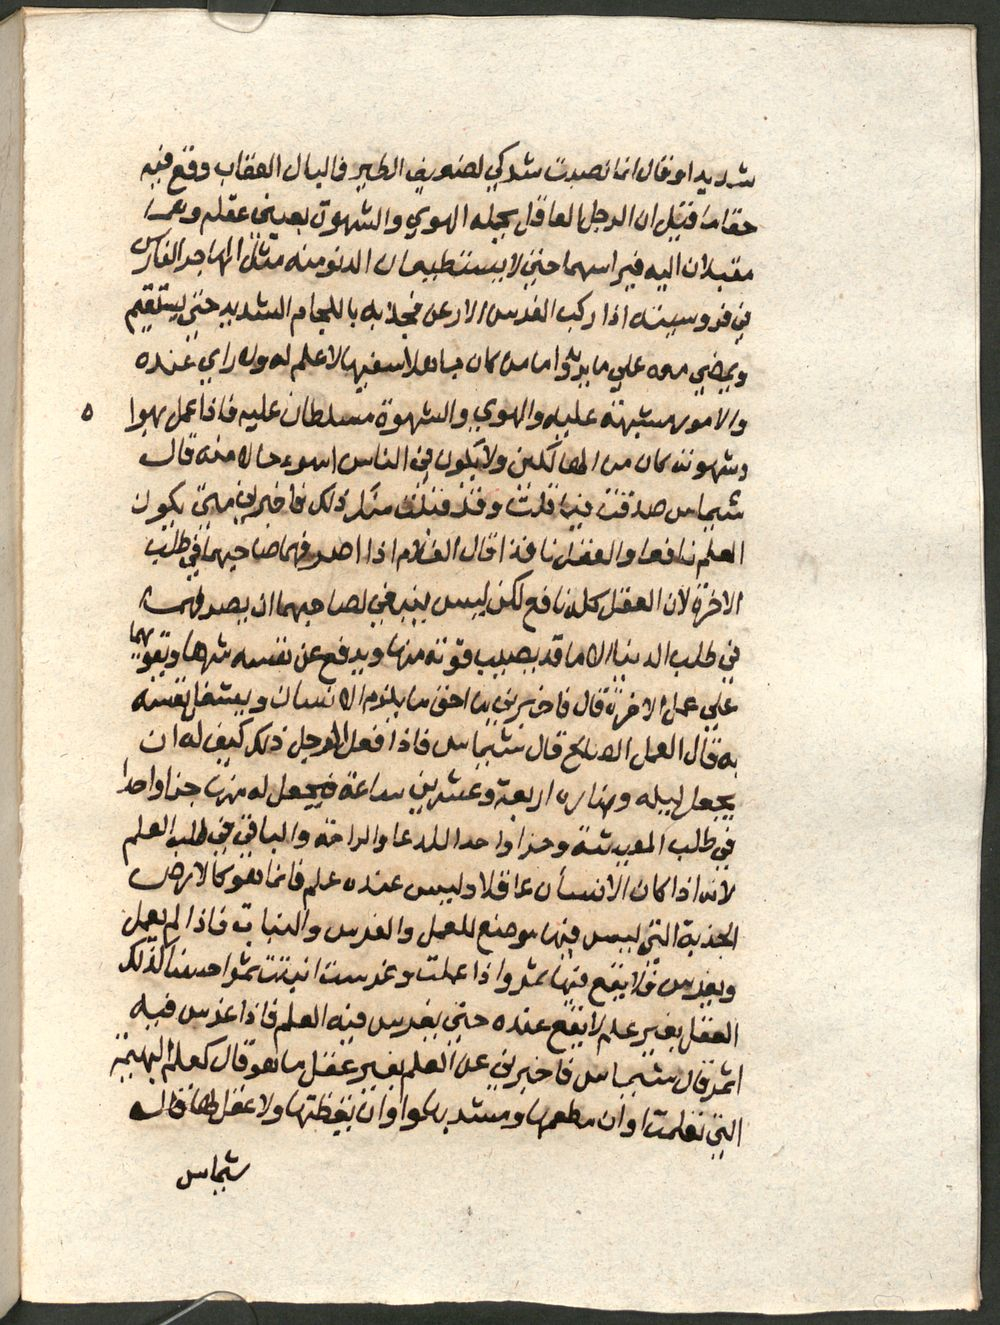 شديدا وقال انما نصبت شركي لضعيف الطير فما بال العقاب وقع فيه
حقا ما قيل ان الرجل العاقل يجبله الهوي والشهوة بعيني عقله وهما
مقبلان اليه فيراسهما حتي لا يستطيعان الدنو منه مثل الماهر الفارس
في فروسيته اذا ركب الفرس الارعن فجذبه باللجام الشديد حتي يستقيم
ويمضي معه علي ما يريد واما من كان جاهلا سفيها لا علم له ولا راي عنده
والامور مشبهته عليه والهوي والشهوة مسلطان عليه فاذا عمل بهوا
وشهوته كان من الهالكين ولا يكون في الناس اسوء حالا منه قال
شيماس صدقت فيما قلت وقد قبلت منك ذلك فاخبرني متي يكون
العلم نافعا والعقل نافذا قال الغلام اذا صرفهما صاحبهما في طلب
الاخرة لان العقل كله نافع لكن ليس ينبغي لصاحبهما ان يصرفهما
في طلب الدنيا الا ما قد يصيب قوته منها ويدفع عن نفسه شرها ويقويهما
علي عمل الاخرة قال فاخبرني ما احق ما يلزم الانسان ويشغل نفسه
به قال العمل الصالح قال شيماس فاذا فعل الرجل ذلك كيف له ان
يجعل ليله ونهاره اربعة وعشرين ساعة فيجعل له منها جزا واحدا
في طلب المعيشة وجزا واحد اللدعا والراحة والباقي في طلب العلم
لانه اذا كان الانسان عاقلا وليس عنده علم فانما هو كالارض
الجذبة التي ليس فيها موضع للعمل والغرس والنبات فاذا لم يعمل
ويغرس فلا يقع فيها ثمر واذا عملت وغرست انبتت ثمرا حسنا كذلك
العقل بغير علم لا يقع عنده حتي يغرس فيه العلم فاذا غرس فيه
اثمر قال شيماس فاخبرني عن العلم بغير عقل ما هو قال كعلم البهيمة
التي تعلمت اوان مطعمها ومشربها واوان يقظتها ولا عقل لها قال
شيماس